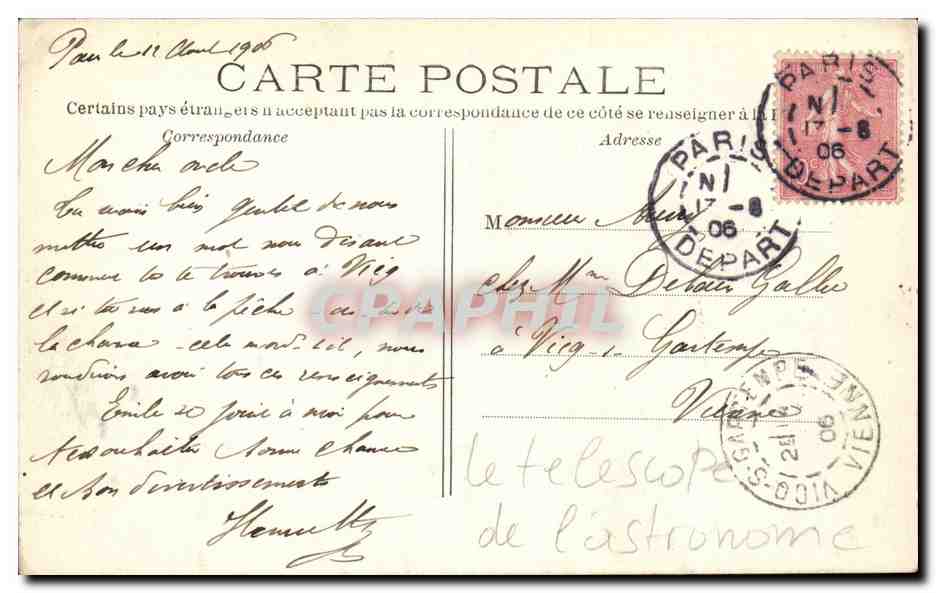 le 12 Aout 1906
CARTE POSTALE
Certains pays étrangers n'acceptant pas la correspondance de ce côté se renseigner à la
Correspondance
Adresse
Mon cher oncle
bien gentil de nous
mettre un mot nous disant
comment tu te trouves à Vicq
et si tu vas à la pêche
la chance cela mord-il, nous
voudrions avoir tous ces renseignements
Emile se joint à moi pour
te souhaiter bonne chance
et bon divertissements
Henriette
Monsieur
chez Mme Gallu
à Vicq-s-Gartempe
Vienne
PARIS
N
17-8
06
DEPART
PARIS
N
17-8
06
DEPART
VICQ-S-GARTEMPE VIENNE
06
CPAPHIL
le telescope
de l'astronome